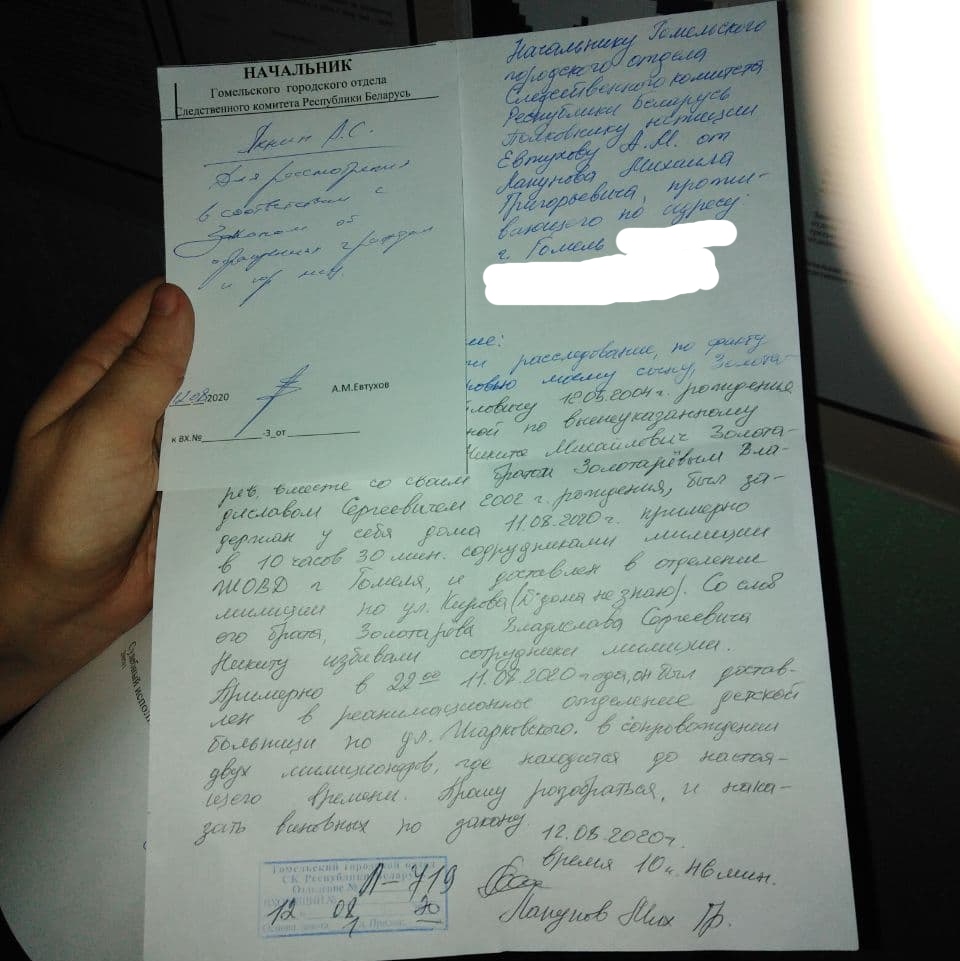 НАЧАЛЬНИК
Гомельского городского отдела
Следственного комитета Республики Беларусь
А.С.
Для рассмотрения
в соответствии с
Законом об
обращениях граждан
и юр лиц
12.08.2020
А.М.Евтухов
к ВХ.№ -3_от
Начальнику Гомельского
городского отдела
Следственного комитета
Республики Беларусь
Полковнику юстиции
Евтухову А.М. от
Лапунова Михаила
Григорьевича, прожи-
вающего по адресу:
г. Гомель
ие:
расследование, по факту
моему сыну, Золота-
ловичу 12.05.2004г. рождения
ной по вышеуказанному
Никита Михайлович Золота-
рев, вместе со своим братом Золотарёвым Вла-
диславом Сергеевичем 2002 г. рождения, был за-
держан у себя дома 11.08.2020г. примерно
в 10 часов 30 мин. содрудниками милиции
ЖОВД г Гомеля, и доставлен в отделении
милиции по ул. Кирова (№ дома не знаю). Со слов
его брата, Золотарева Владислава Сергеевича
Никиту избивали сотрудники милиции.
Примерно в 22 00 11.08.2020 года, он был достав-
лен в реанимационное отделение детской
больници по ул. Жарковского, в сопровождении
двух милиционеров, где находится до настоя-
щего времени. Прошу разобраться, и нака-
зать виновных по закону
12.08.2020г.
время 10 ч. 46 мин.
Лапунов Мих Гр.
Гомельский городской отдел
СК Республики Беларусь
Отделение №
Л-719
12 08 20
Судебный испол